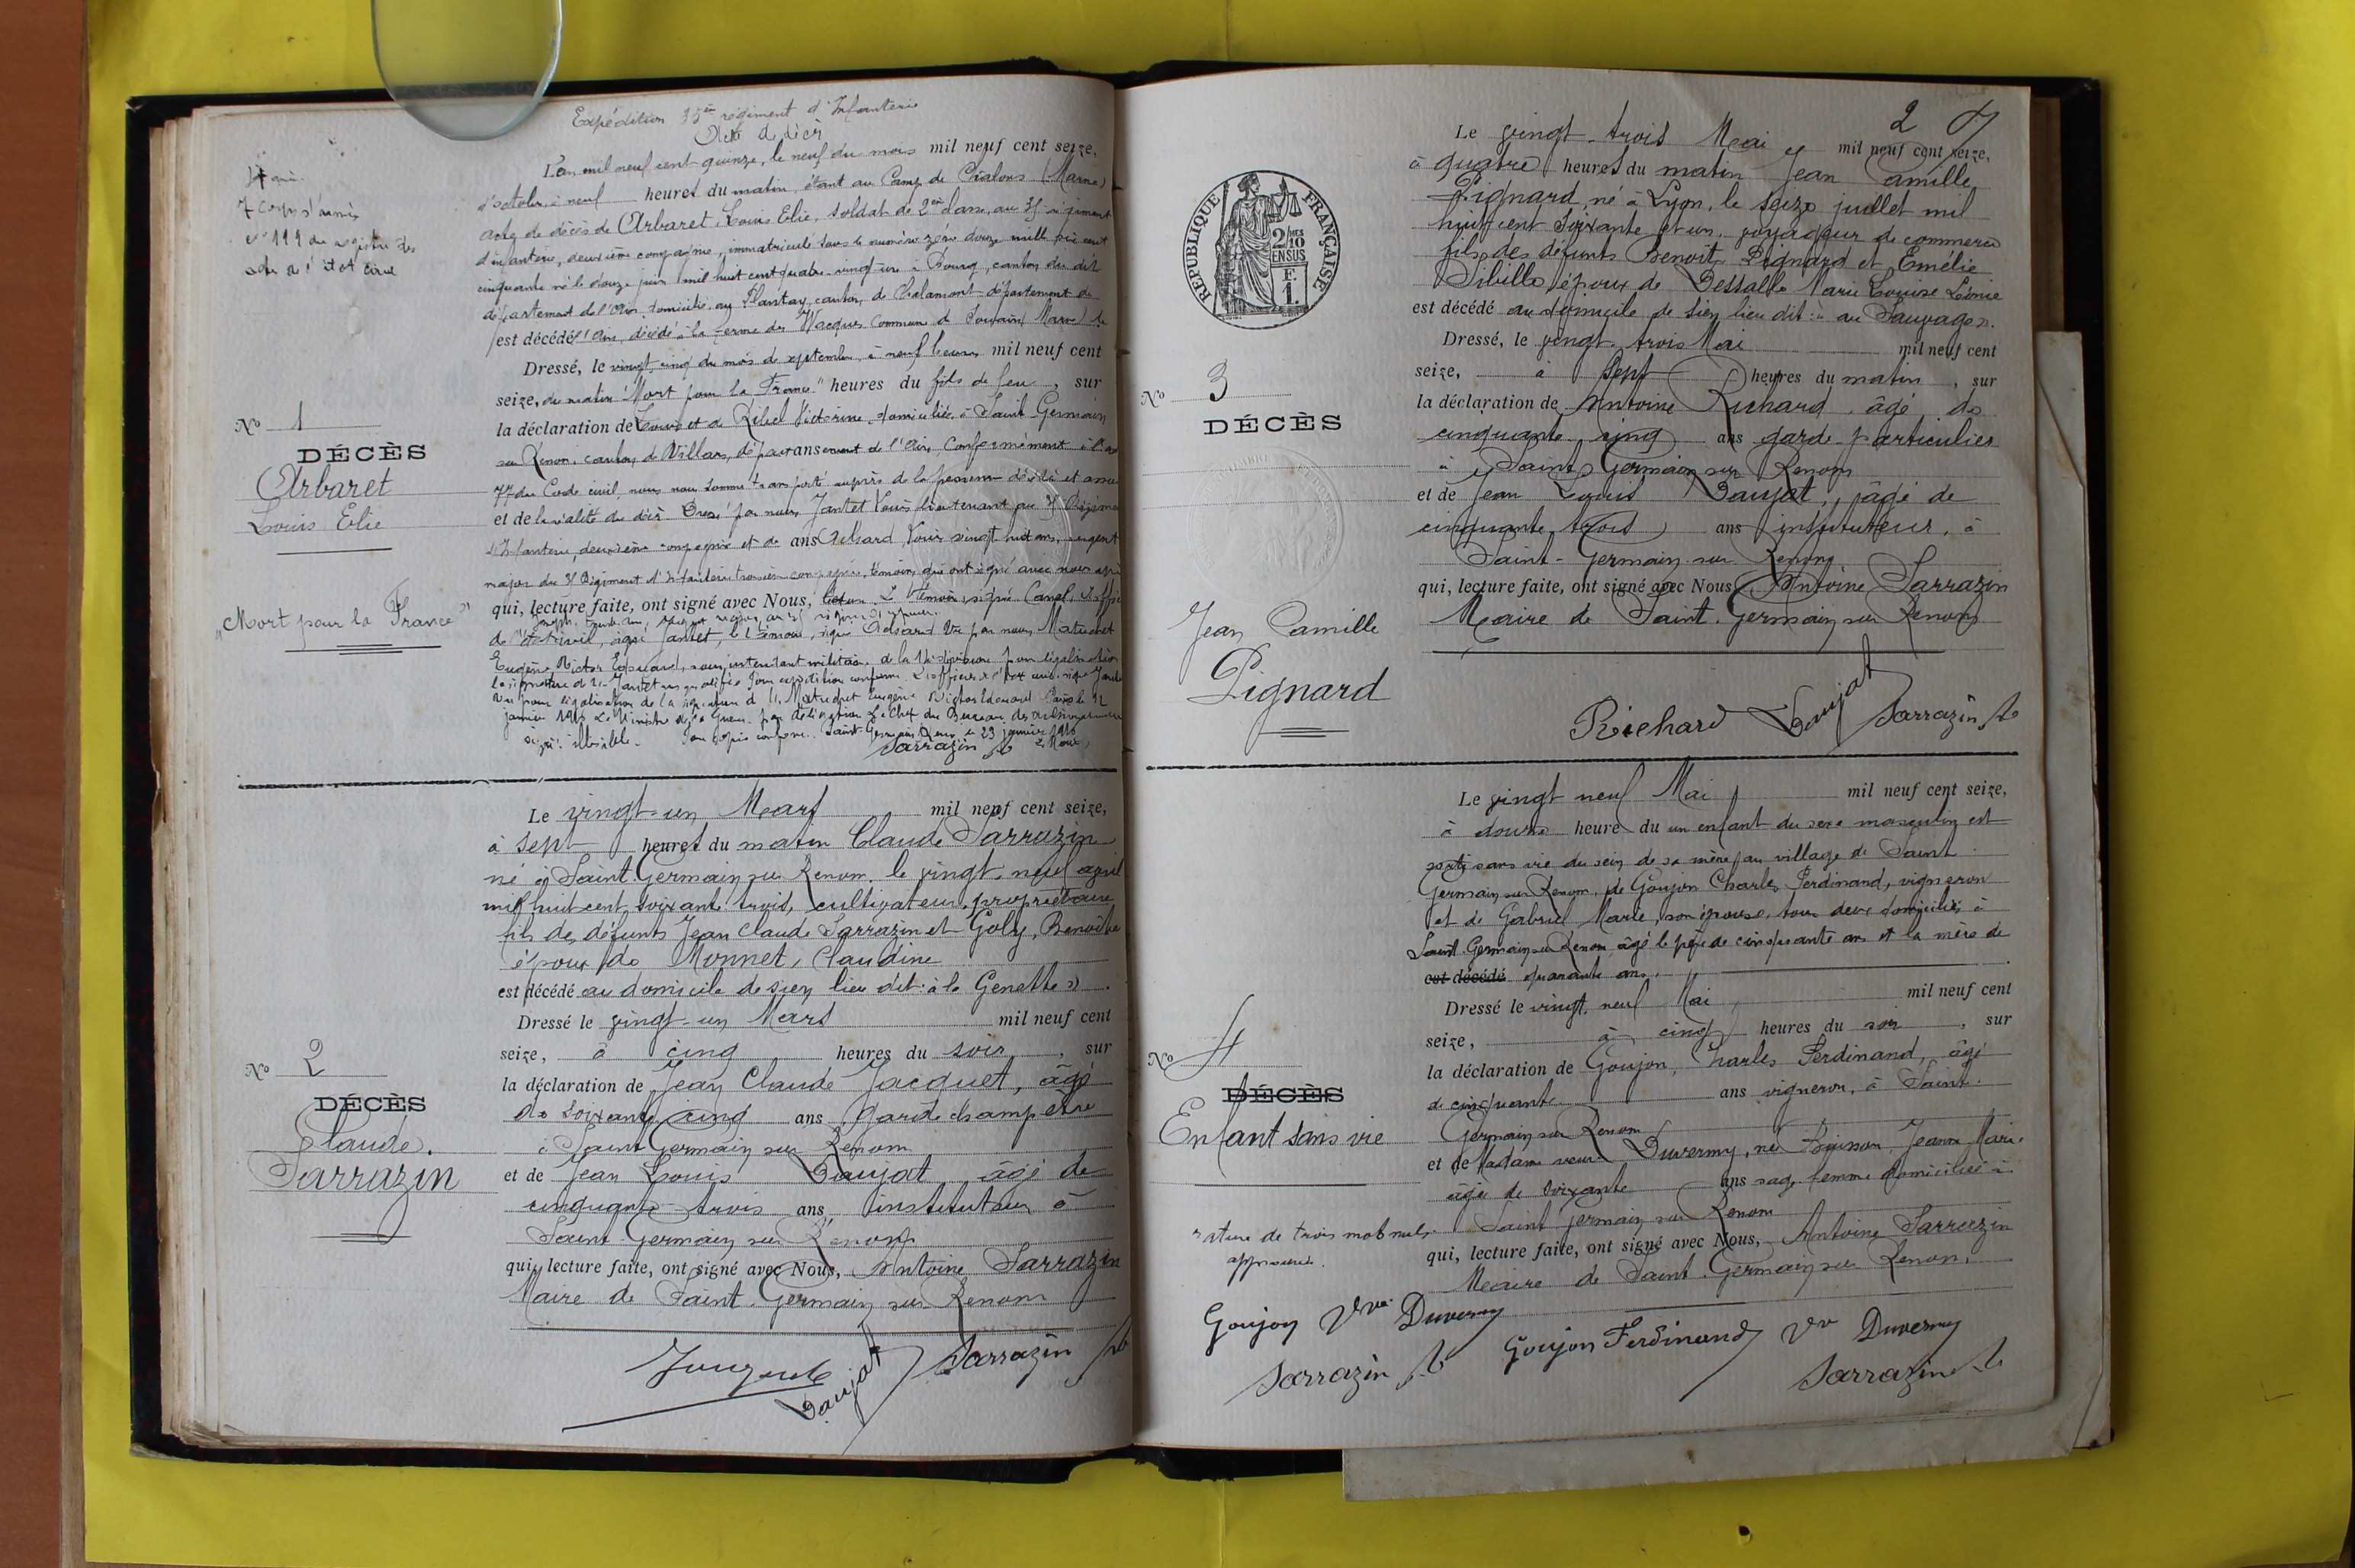 Expédition 35ème régiment d'Infanterie
Acte de décès
L'an mil neuf cent quinze, le neuf du mois mil neuf cent seize,
d'octobre, à neuf heures du matin, étant au Camp de Chalons (Marne)
acte de décès de Arbaret, Louis Elie, soldat de 2ème classe, au régiment
d'infanterie, deuxième compagnie, immatriculé sous le numéro zéro douze mille six cent
cinquante né le douze juin mil huit cent quatre-vingt-un à Bourg, canton du dit
département de l'Ain, domicilié au Plantay, canton de Chalamont département de
est décédé l'Ain, décédé à la ferme des Wacques commune de Souain (Marne) le
Dressé, le vingt-cinq du mois de septembre, à neuf heures mil neuf cent
seize, du matin "Mort pour la France" heures du fils de feu, sur
la déclaration de Louis et de Victorine, domiciliée à Saint Germain
sur Renon, canton de Villars, département ans de l'Ain. Conformément à l'art
77 du Code civil, nous nous sommes transporté auprès de la personne décédée et assuré
et de la réalité du décès. Dressé par nous, Jantet Louis lieutenant au Régiment
d'Infanterie, deuxième compagnie et de ans Achard, Louis vingt huit ans, sergent
major du Régiment d'Infanterie troisième compagnie, témoins qui ont signé avec nous après
qui, lecture faite, ont signé avec Nous, Le témoin, signé Canel. L'officier
de l'état civil, signé Jantet, le témoin, signé Achard Vu par nous Matuchet
Eugène Victor Edouard, sous intendant militaire de la 14 division pour légalisation
la signature de M. Jantet sus qualifié. Pour expédition conforme. L'officier de l'état civil signé Jantet
Vu pour légalisation de la signature de M. Matuchet Eugène Victor Edouard Paris le 12
janvier 1916 Le Ministre de la Guerre par délégation Le Chef du Bureau des Renseignements
signé: illisible. Pour copie conforme. Saint Germain Renon le 23 janvier 1916
Sarrazin Le Maire,
7 Corps d'armée
n° 119 du registre des
actes de l'état civil
No 1
DÉCÈS
Arbaret
Louis Elie
"Mort pour la France"
Le vingt-un Mars mil neuf cent seize,
à sept heures du matin Claude Sarrazin
né à Saint-Germain sur Renom, le vingt-neuf avril
mil huit cent soixante trois, cultivateur propriétaire
fils des défunts Jean Claude Sarrazin et Goly, Benoîte
époux de Monnet, Claudine
est décédé au domicile de sien lieu dit: à la Genette ».
Dressé le vingt-un Mars mil neuf cent
seize, à cinq heures du soir, sur
la déclaration de Jean Claude Jacquet, âgé
de soixante cinq ans garde champêtre
à Saint Germain sur Renom
et de Jean Louis Daujat âgé de
cinquante-trois ans, instituteur à
Saint-Germain sur Renom
qui, lecture faite, ont signé avec Nous, Antoine Sarrazin
Maire de Saint-Germain sur Renom
No 2
DÉCÈS
Claude
Sarrazin
Jacquet
Daujat
Sarrazin
2
Le vingt-trois Mai mil neuf cent seize,
à quatre heures du matin Jean Camille
Pignard, né à Lyon, le seize juillet mil
huit cent soixante et un, voyageur de commerce
fils des défunts Benoît Pignard et Emélie
Sibille, époux de Dessalle Marie Louise Léonie
est décédé au domicile de sien lieu dit: « au Sauvage ».
Dressé, le vingt-trois Mai mil neuf cent
seize, à sept heures du matin, sur
la déclaration de Antoine Richard âgé de
cinquante cinq ans garde-particulier
à Saint Germain sur Renom
et de Jean Louis Daujat, âgé de
cinquante trois ans instituteur, à
Saint-Germain sur Renom
qui, lecture faite, ont signé avec Nous, Antoine Sarrazin
Maire de Saint-Germain sur Renom
RÉPUBLIQUE FRANÇAISE
2/10
EN SUS
F.
1.
No 3
DÉCÈS
Jean Camille
Pignard
Richard Daujat Sarrazin
Le vingt neuf Mai mil neuf cent seize,
à douze heure du un enfant du sexe masculin est
sorti sans vie du sein de sa mère au village de Saint
Germain sur Renom, de Goujon Charles Ferdinand, vigneron
et de Gabriel Marie, son épouse, tous deux domiciliés à
Saint-Germain sur Renom, âgé le père de cinquante ans et la mère de
est décédé quarante ans.
Dressé le vingt neuf Mai mil neuf cent
seize, à cinq heures du soir, sur
la déclaration de Goujon, Charles Ferdinand, âgé
de cinquante ans vigneron, à Saint
Germain sur Renom
et de Madame veuve Duvermy, née Jeanne Marie
âgée de soixante ans sage femme domiciliée à
Saint Germain sur Renom
qui, lecture faite, ont signé avec Nous, Antoine Sarrazin
Maire de Saint-Germain sur Renon,
No 4
DÉCÈS
Enfant sans vie
rature de trois mots nuls
approuvée.
Goujon Vve Duvermy
Sarrazin
Goujon Ferdinand Vve Duvermy
Sarrazin